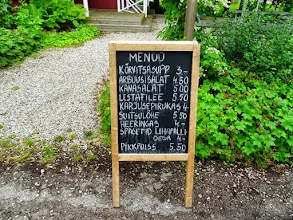 MENÜÜ
KÕRVITSASUPP 3.-
ARBUUSISALAT 4.50
KANASALAT 5.00
LESTAFILEE 5.50
KARJUSEPIRUKAS 4.-
SUITSULÕHE 5.50
HEERINGAS 4.-
SPAGETID LIHAPALLI
OMGA 4.-
PIKKPOISS 5.50